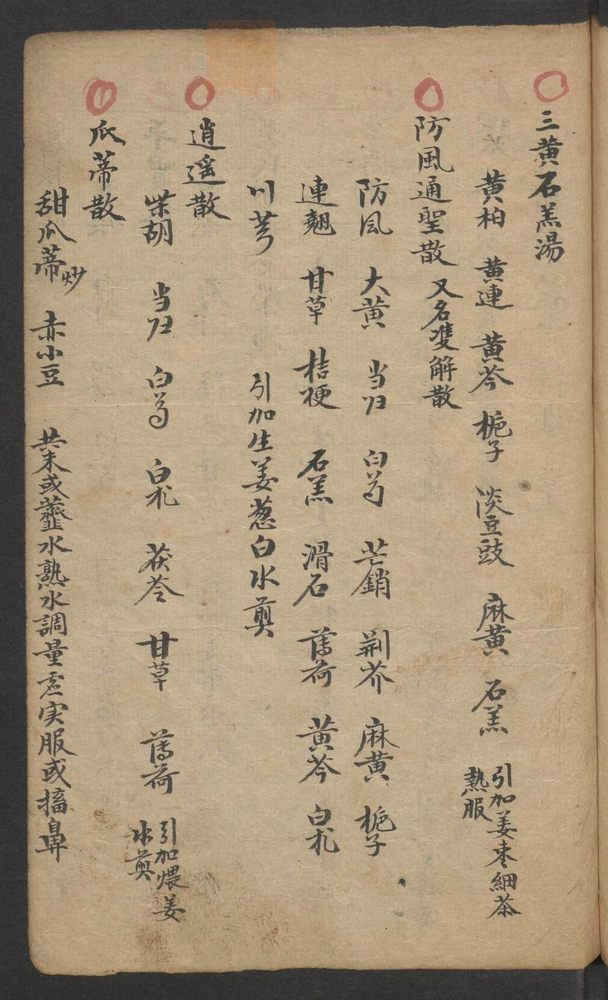 三黄石羔湯
黄柏 黄連 黄芩 梔子 淡豆豉 麻黄 石羔 引加姜枣細茶
熱服
防風通聖散 又名雙解散
防风 大黄 当归 白芍 芒銷 荆芥 麻黄 梔子
連翹 甘草 桔梗 石羔 滑石 薄荷 黄芩 白朮
川芎 引加生姜葱白水煎
逍遥散
柴胡 当归 白芍 白朮 茯苓 甘草 薄荷 引加煨姜
水煎
瓜蒂散
甜瓜蒂炒 赤小豆 共末或虀水熟水調量虚实服或搐鼻